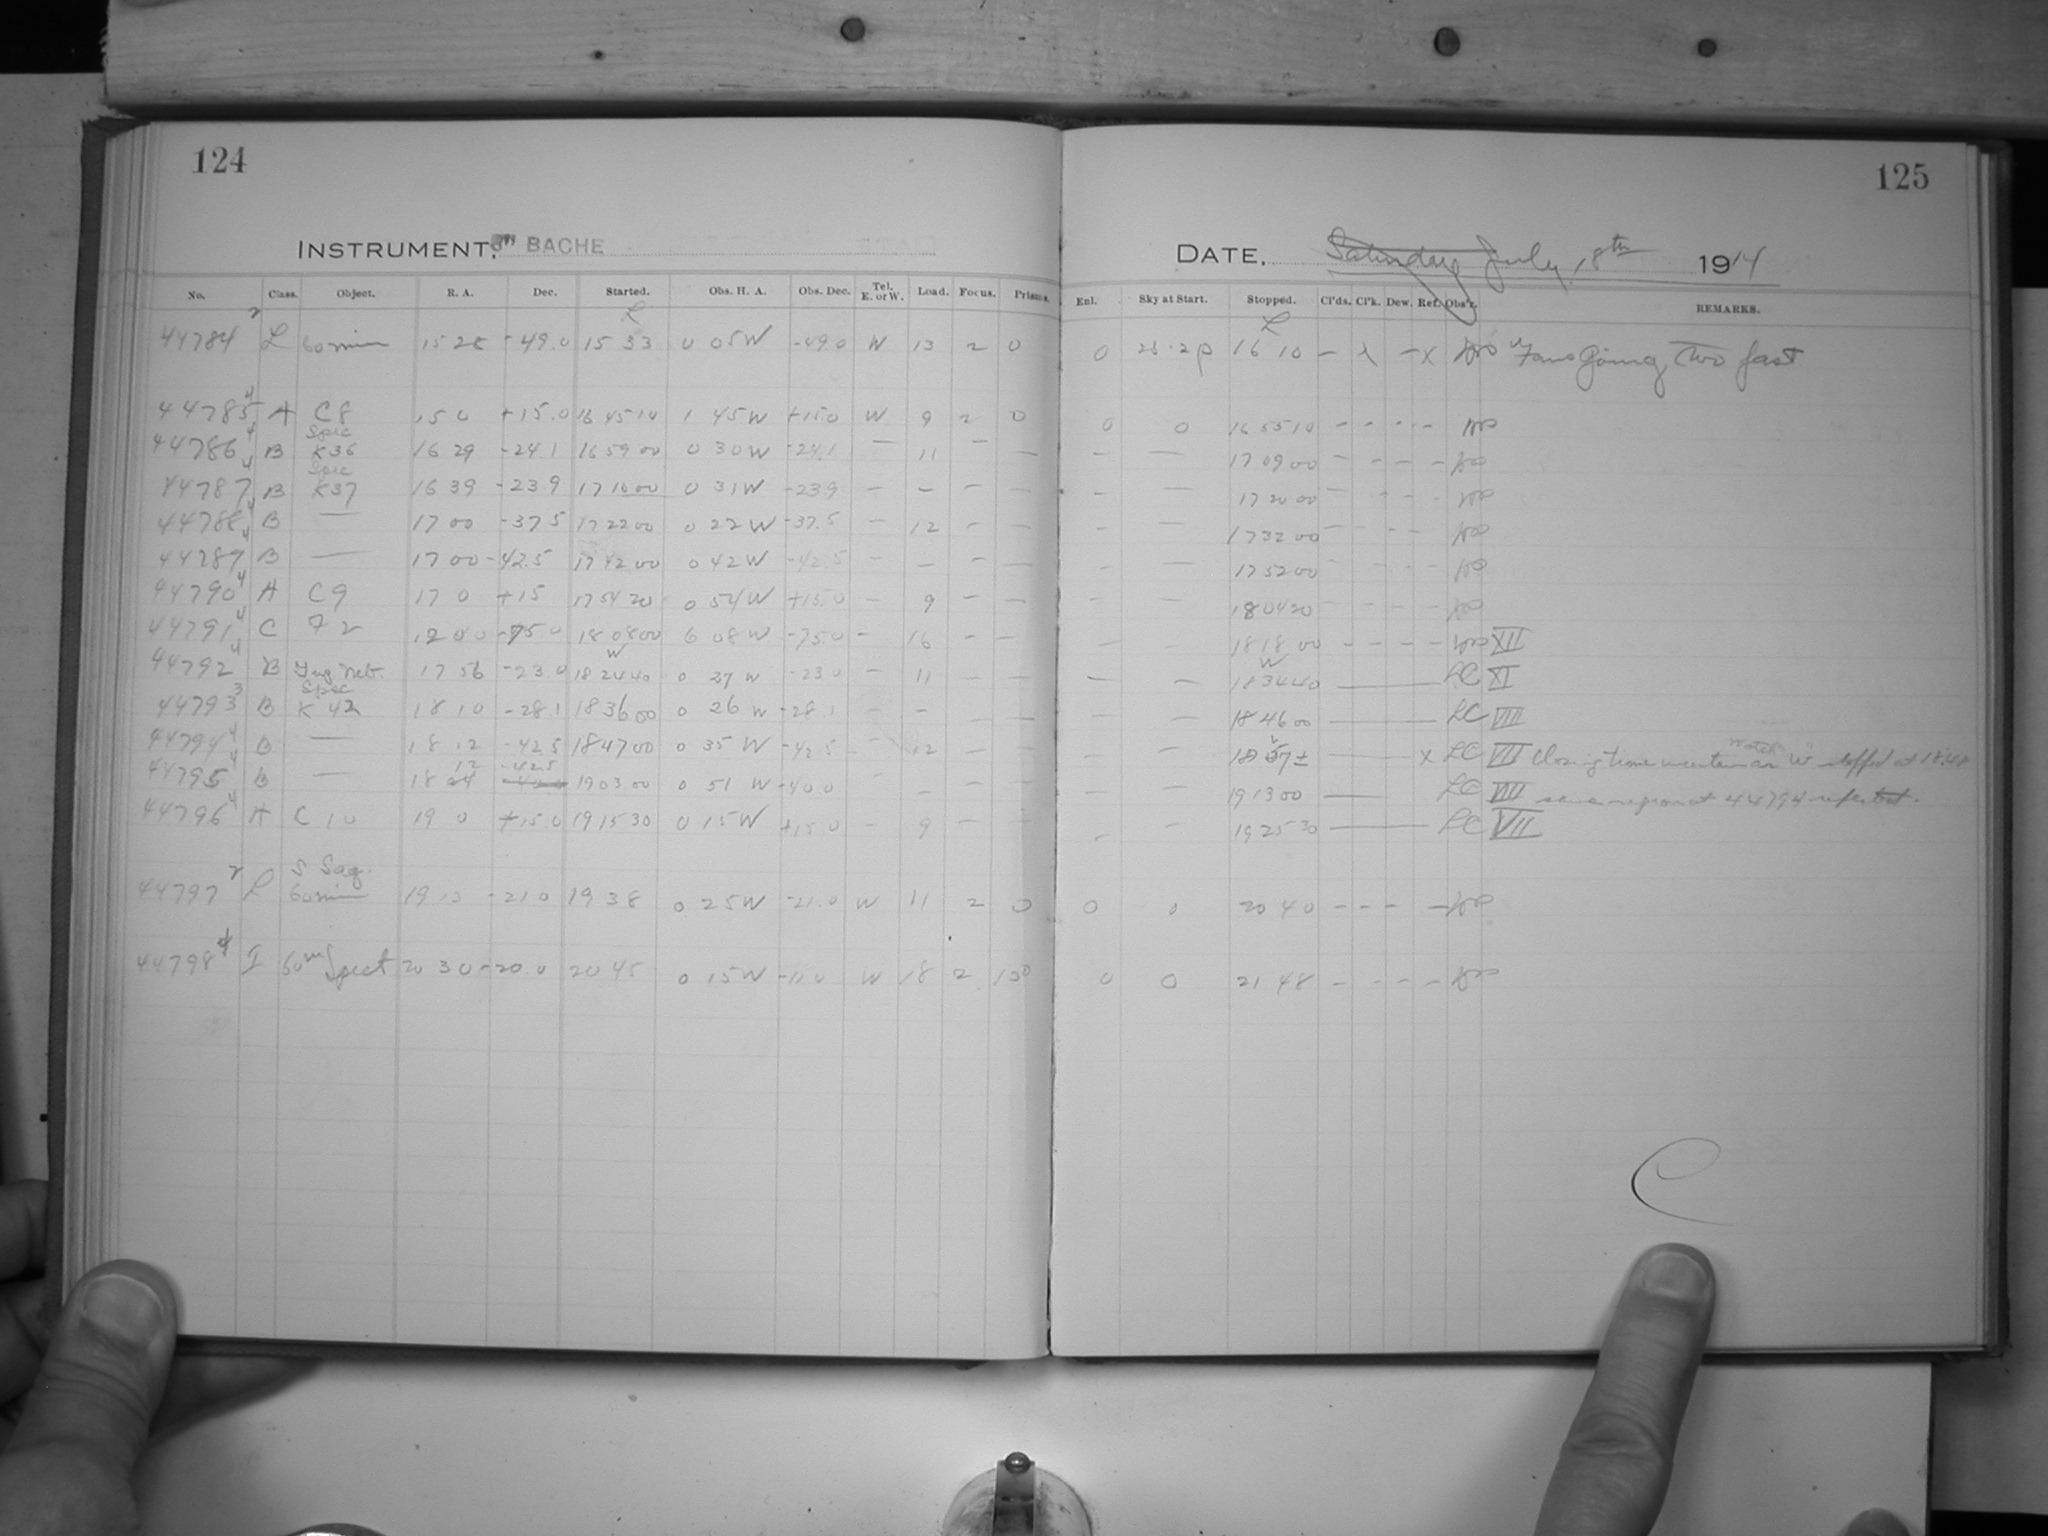 124
125
INSTRUMENT, 8in BACHE
DATE, Saturday July 18th 1914
No. Class. Object. R. A. Dec. Started. Obs. H. A. Obs. Dec. Tel. E. or W. Load. Focus. Prisms. Enl. Sky at Start. Stopped. Cl'ds. Cl'k. Dew. Ref. Obs'r. REMARKS.
L L
44784 L 60 min 15 28 -49.0 15 33 0 05 W -49.0 W 13 2 0 0 16 10 - - x Going Two fast
44785 4 A C8 15 0 +15.0 16 45 10 1 45 W +15.0 W 9 2 0 0 0 16 55 10 - - - -
Spec
44786 4 B K36 16 29 -24.1 16 59 00 0 30 W -24.1 — 11 — — — — 17 09 00 - - - -
Spec
44787 4 B K37 16 39 -23.9 17 10 00 0 31 W -23.9 — — — — — — 17 20 00 - - - -
44788 4 B — 17 00 -37.5 17 22 00 0 22 W -37.5 — 12 — — — — 17 32 00 - - - -
44789 4 B — 17 00 -42.5 17 42 00 0 42 W -42.5 — — — — — — 17 52 00 - - - -
44790 4 A C9 17 0 +15 17 54 20 0 54 W +15.0 — 9 — — — — 18 04 20 - - - -
44791 4 C 72 12 00 -75.0 18 08 00 6 08 W -75.0 — 16 — — — — 18 18 00 - - - - XII
W W
44792 4 B Neb. 17 56 -23.0 18 24 40 0 27 W -23.0 — 11 — — — — 18 34 40 — LC XI
Spec
44793 3 B K 42 18 10 -28.1 18 36 00 0 26 W -28.1 — — — — — — 18 46 00 — LC VIII
44794 4 B — 18 12 -42.5 18 47 00 0 35 W -42.5 — 12 — — — — 18 57 ± — x LC VII Closing time uncertain as Watch "W" stopped at 18.48
12 -42.5
44795 4 B — 18 24 19 03 00 0 51 W -40.0 — — — — — — 19 13 00 — LC VIII same region as 44794 repeated.
44796 4 A C 10 19 0 +15.0 19 15 30 0 15 W +15.0 — 9 — — — — 19 25 30 — LC VII
S Sag.
44797 L 60 min 19 13 -21.0 19 38 0 25 W -21.0 W 11 2 0 0 0 20 40 - - - -
44798 4 I 60m Spect 20 30 -20.0 20 45 0 15 W W 18 2 0 0 21 48 - - - -
C